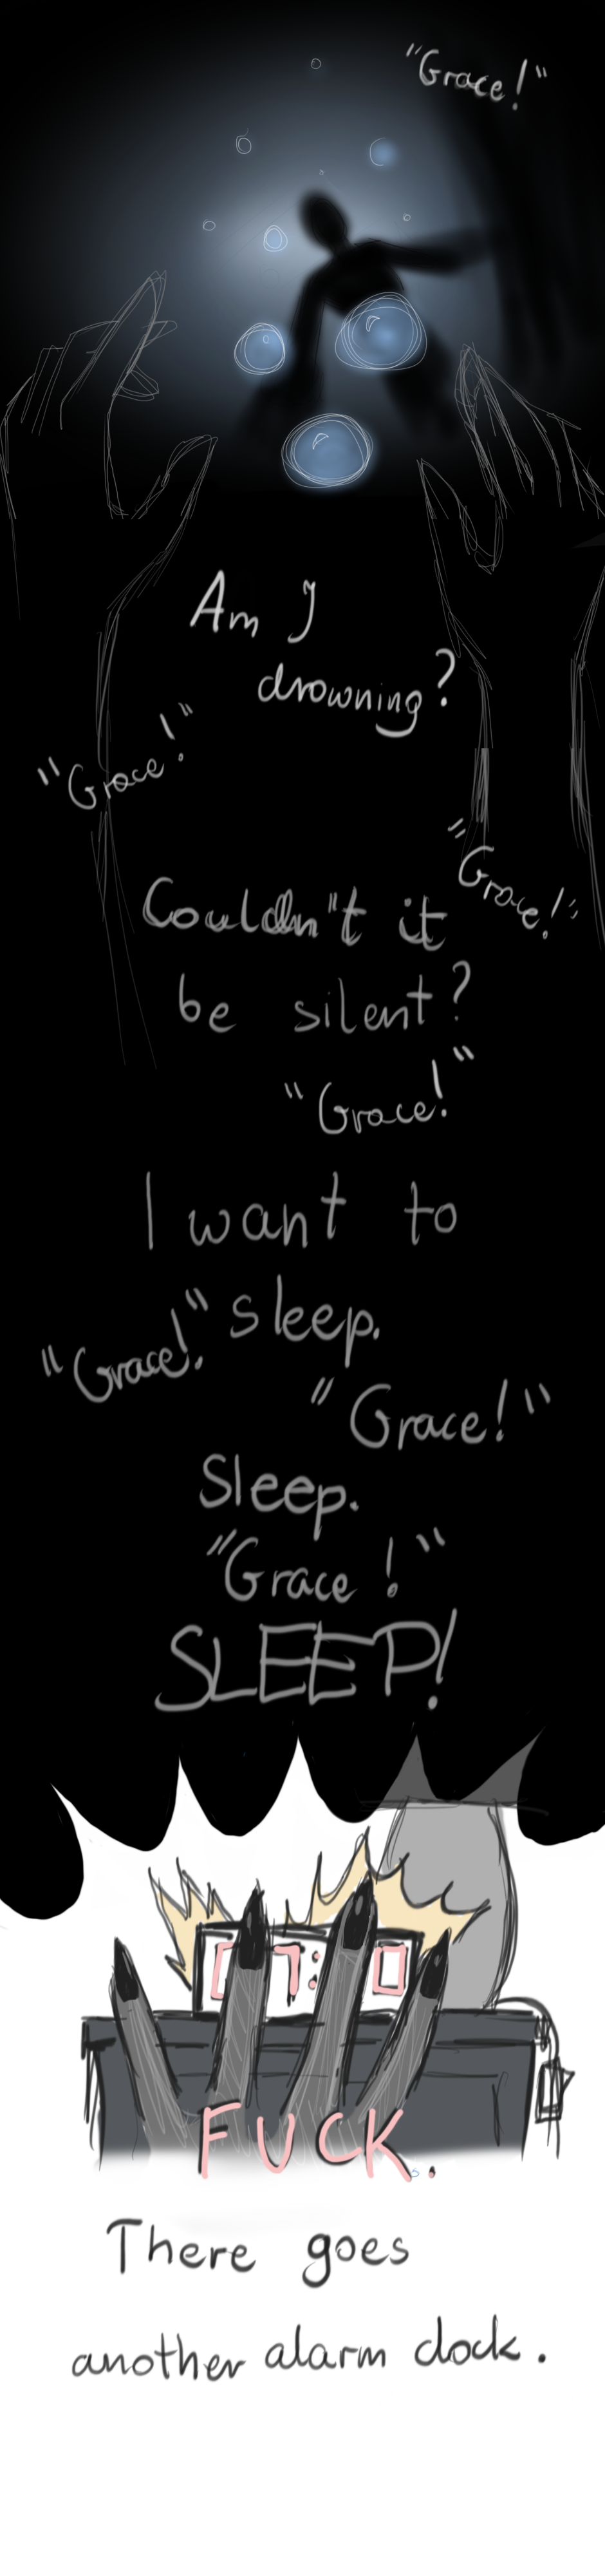 "Grace!"
Am I
drowning?
"Grace!"
"Grace!"
Couldn't it
be silent?
"Grace!"
I want to
sleep.
"Grace!"
"Grace!"
Sleep.
"Grace!"
SLEEP!
7: 0
FUCK.
There goes
another alarm clock.